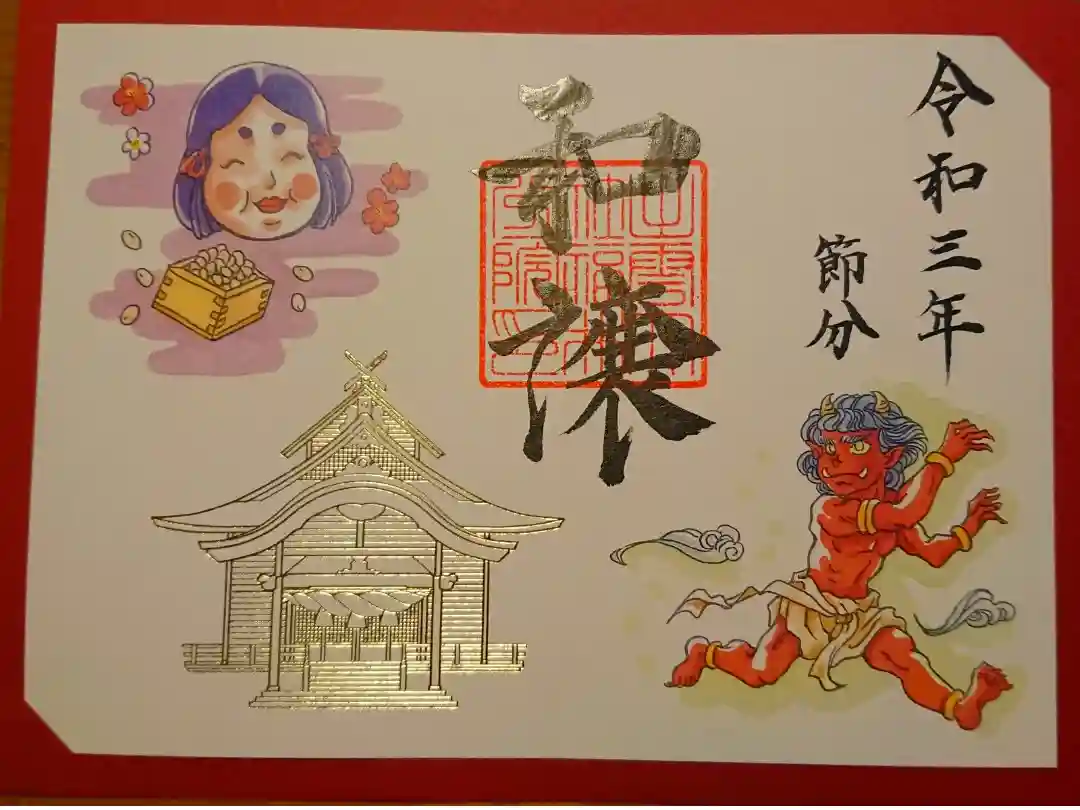 令和三年
節分
和譲